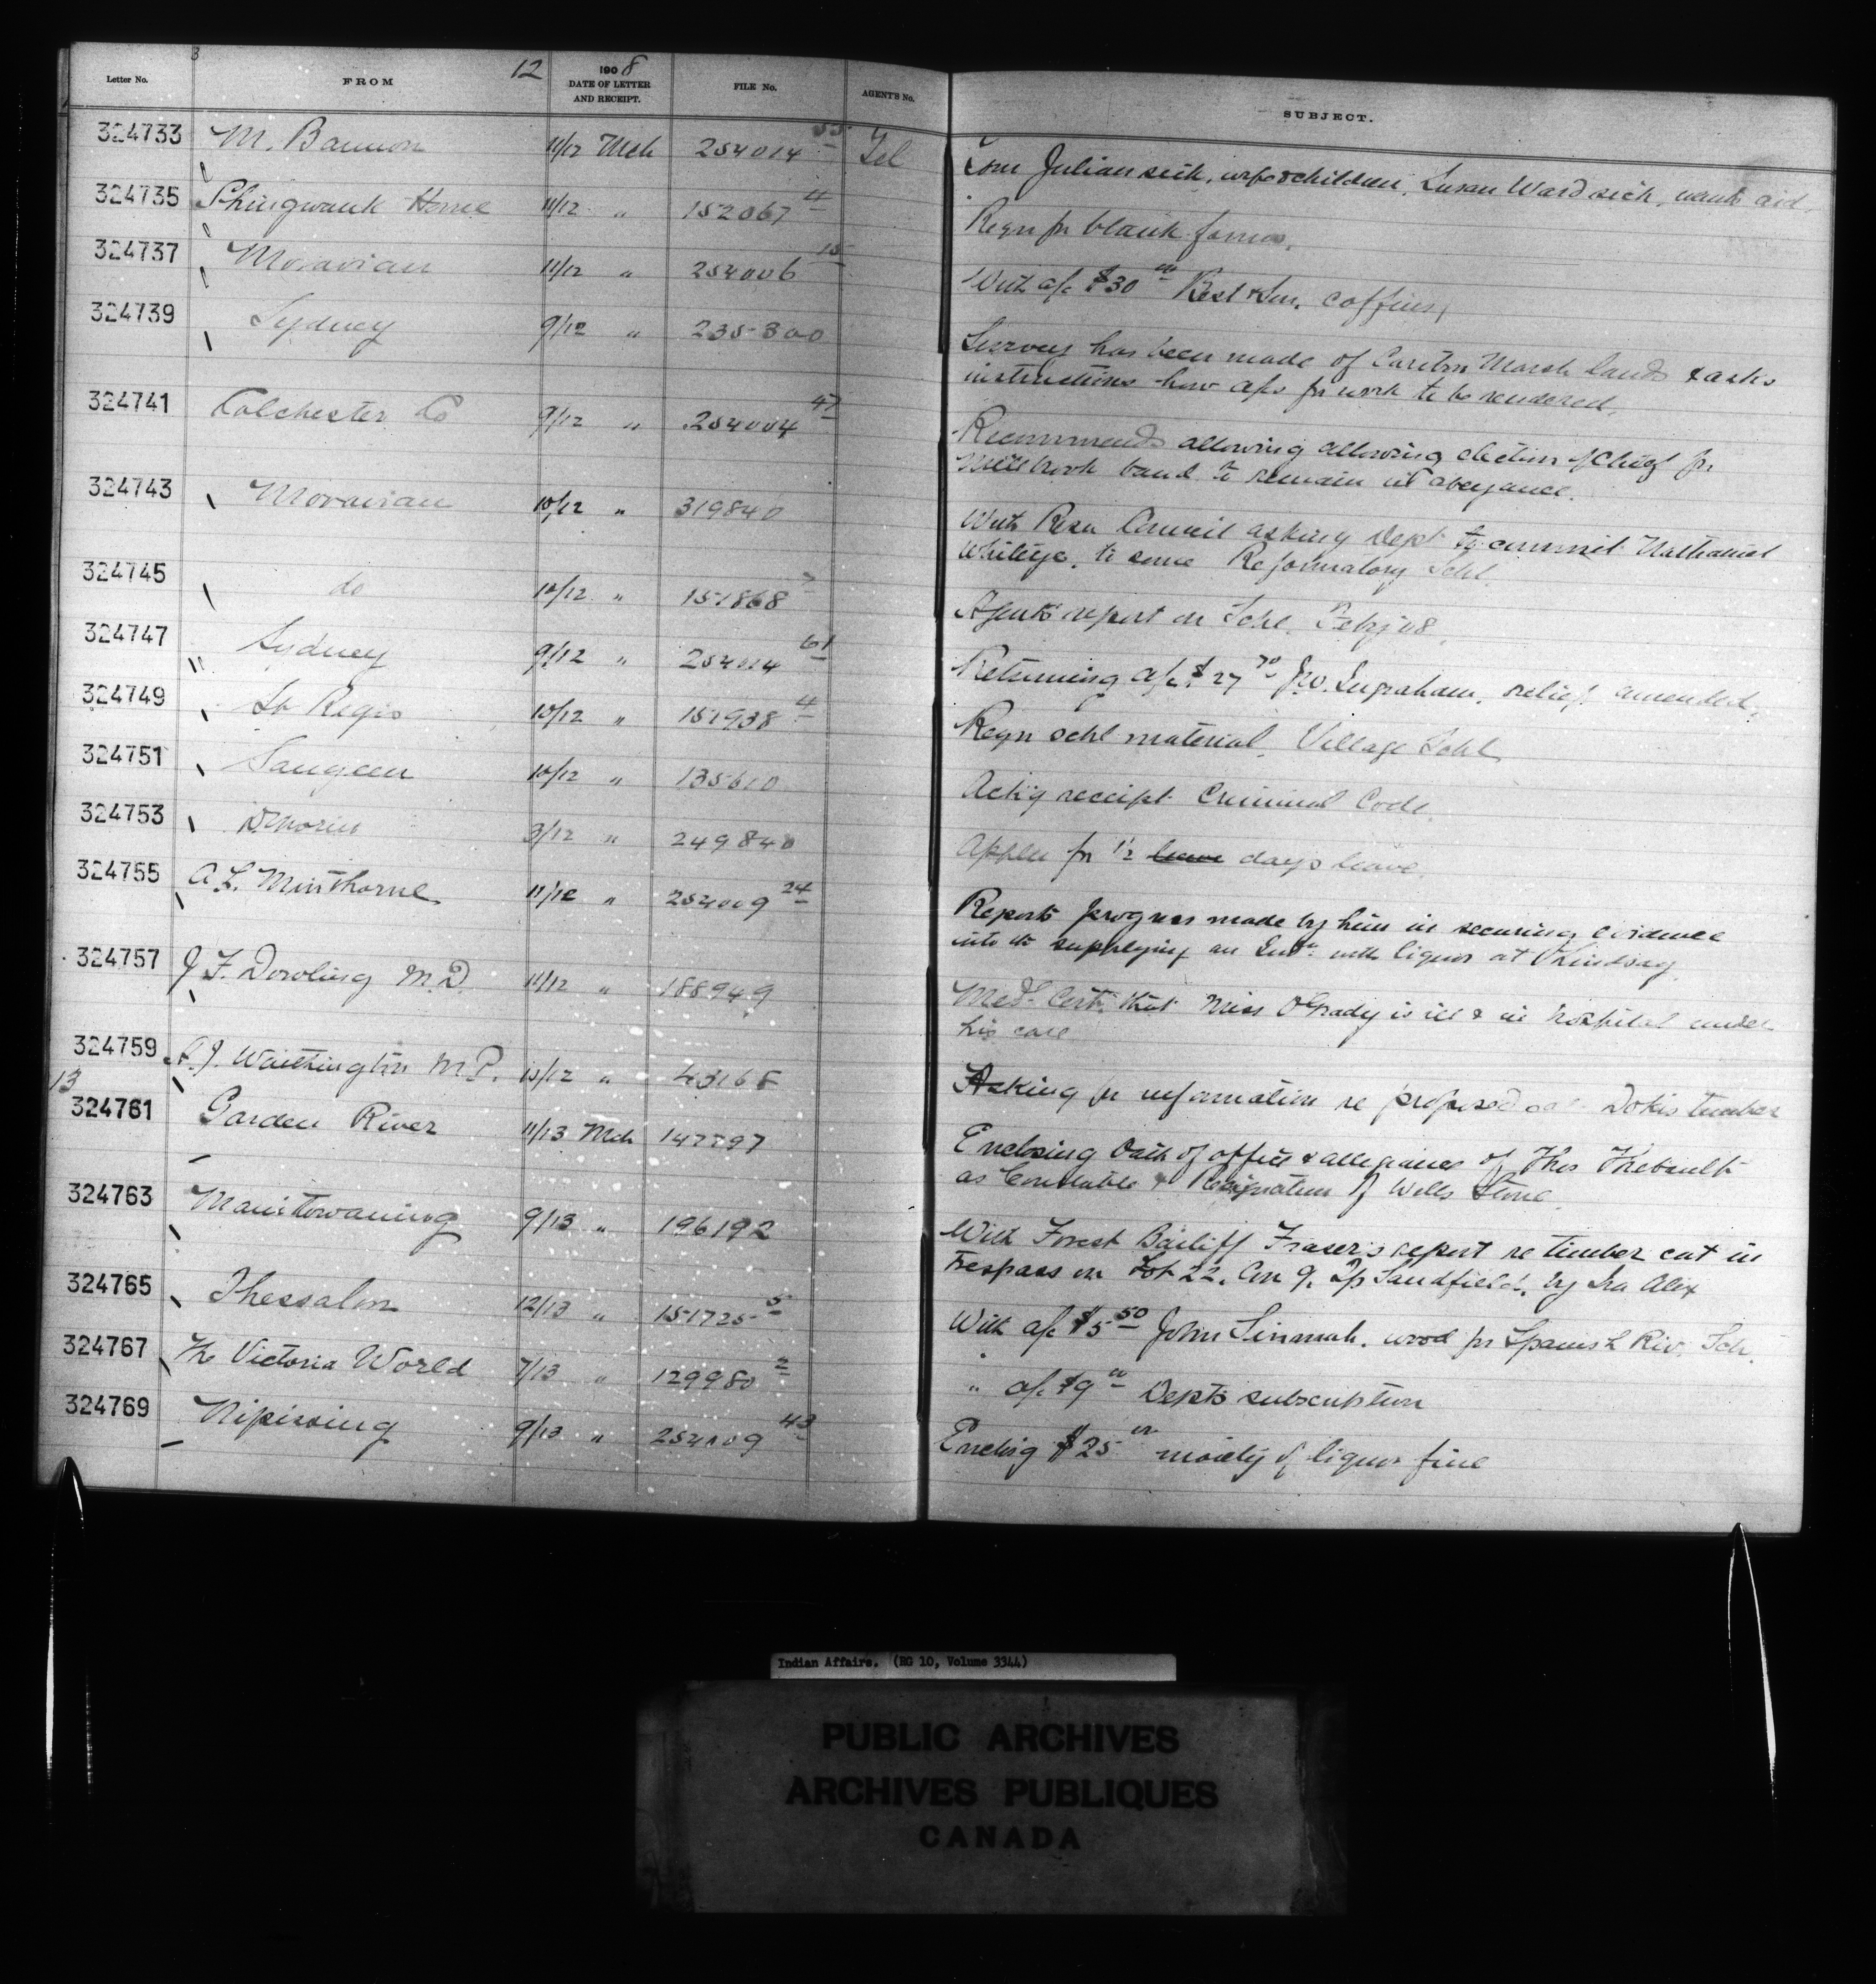 3
Letter No. FROM 12 1908 DATE OF LETTER AND RECEIPT. FILE No. AGENT'S No. SUBJECT.
324733 M. Bannon 11/12 Mch 254014 55 Tel Tom Julian sick, wife & children, Susan Ward sick, wants aid.
324735 Shingwauk Home 11/12 " 152067 4 Reqn for blank forms.
324737 Moravian 11/12 " 254006 15 With a/c $30 00 Best & Son, coffins,
324739 Sydney 9/12 " 235300 Survey has been made of Caribou Marsh lands & asks
instructions how a/cs for work to be rendered.
324741 Colchester Co 9/12 " 254004 47 Recommends allowing allowing election of Chief for
Millbrook band to remain in abeyance.
324743 Moravian 10/12 " 319840 With Resn Council asking Dept to commit Nathaniel
Whiteye, to some Reformatory Schl.
324745 do 10/12 " 151868 7 Agents report on Schl. Feby 08.
324747 Sydney 9/12 " 254014 61 Returning a/c $27 70 J.W. Ingraham, relief, amended.
324749 St Regis 10/12 " 151938 4 Reqn schl material, Village Schl
324751 Saugeen 10/12 " 135610 Ack'g receipt Criminal Code.
324753 3/12 " 249840 Appln for 1/2 leave days leave.
324755 A.L. Minthorne 11/12 " 254009 24 Reports progress made by him in securing evidence
into the supplying an Indn with liquor at Lindsay
324757 J F. Dowling M.D. 11/12 " 188949 Med. Cert. that Miss O'Grady is ill & in hospital under
his care
324759 A.J. Waithington M.P. 10/12 " 43168 Asking for information re proposed Dokis timber
13
324761 Garden River 11/13 Mch 147797 Enclosing Oath of office & allegiance of Thos Thebault
as Constable & Resignation of Wells Stone.
324763 Manitowaning 9/13 " 196192 With Forest Bailiff Fraser's report re timber cut in
trespass on Lot 22, Con 9, Tp Sandfield, by Ira Alex
324765 Thessalon 12/13 " 151725 5 With a/c $5 50 John Sinmah, wood for Spanish Riv. Sch.
324767 The Victoria World 7/13 " 129980 2 " a/c $9 00 Depts subscription
324769 Nipissing 9/13 " 254009 43 Enclos'g $25 00 moiety of liquor fine
Indian Affairs. (RG 10, Volume 3344)
PUBLIC ARCHIVES
ARCHIVES PUBLIQUES
CANADA